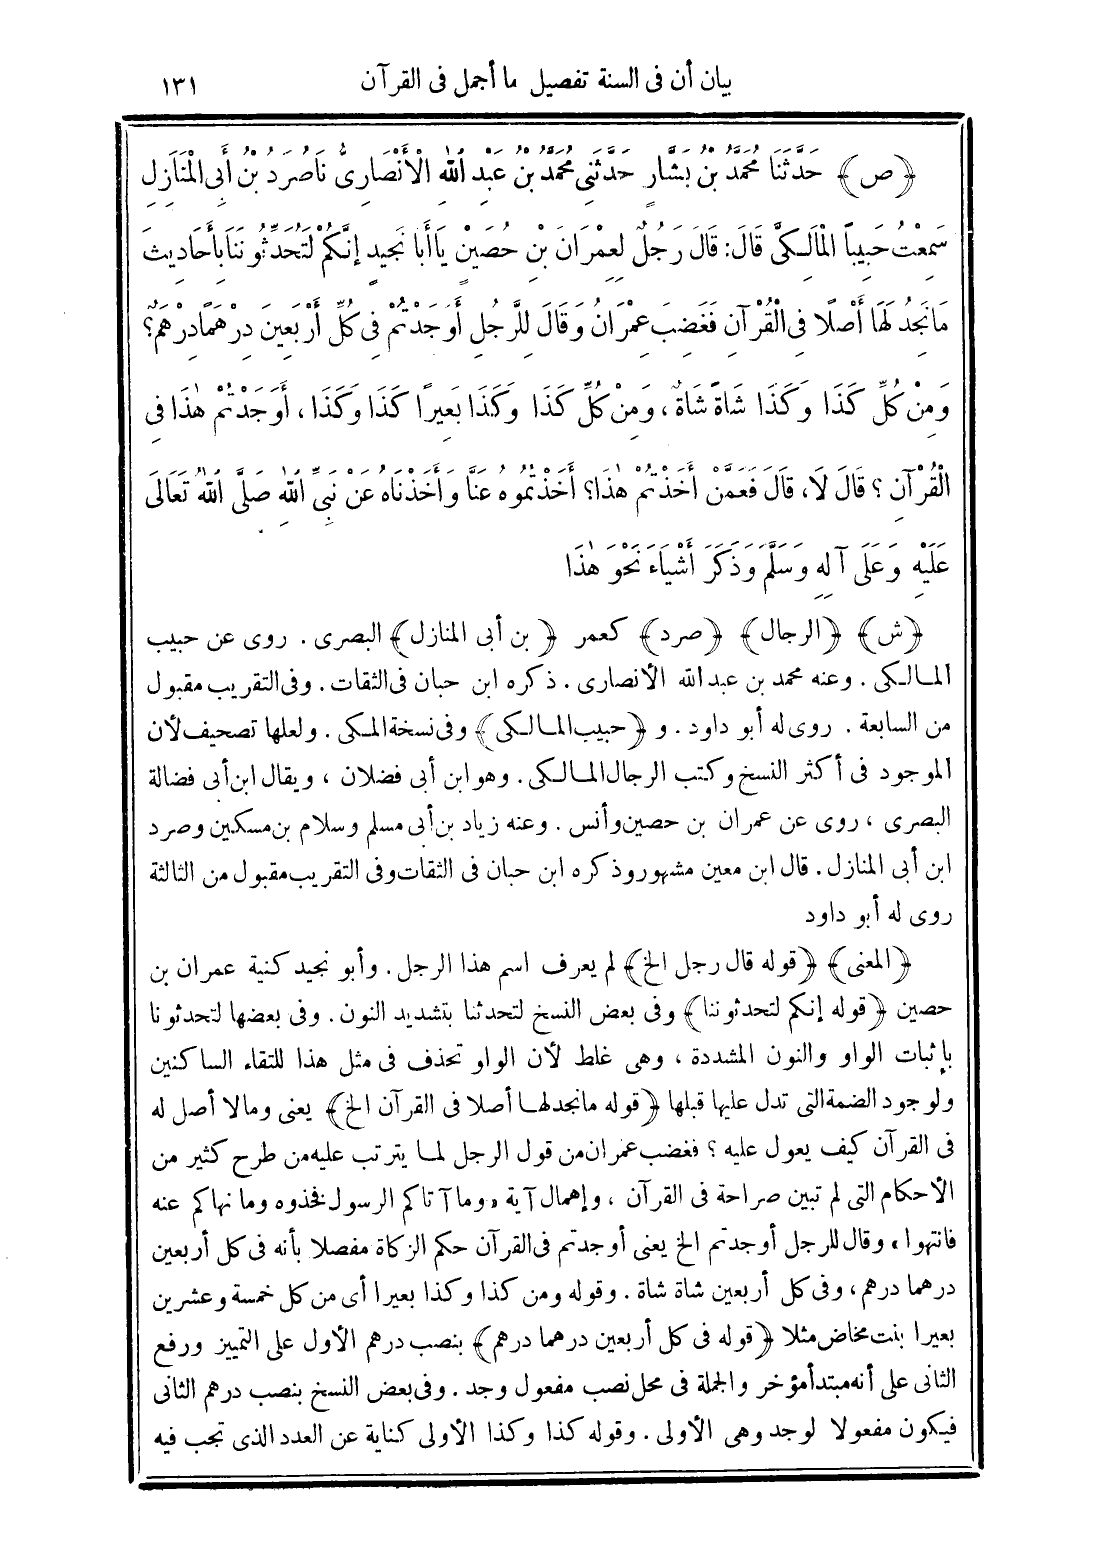 بيان أن فى السنة تفصيل ما أجمل فى القرآن ١٣١
﴿ص﴾ حَدَّثَنَا مُحَمَّدُ بْنُ بَشَّارٍ حَدَّثَنِى مُحَمَّدُ بْنُ عَبْدِ اللهِ الْأَنْصَارِىُّ نَا صُرَدُ بْنُ أَبِى الْمَنَازِلِ
سَمِعْتُ حَبِيباً الْمَالِكِىَّ قَالَ: قَالَ رَجُلٌ لِعِمْرَانَ بْنِ حُصَيْنٍ يَا أَبَا نُجَيْدٍ إِنَّكُمْ لَتُحَدِّثُونَنَا بِأَحَادِيثَ
مَا نَجِدُ لَهَا أَصْلًا فِى الْقُرْآنِ فَغَضِبَ عِمْرَانُ وَقَالَ لِلرَّجُلِ أَوَجَدْتُمْ فِى كُلِّ أَرْبَعِينَ دِرْهَمًا دِرْهَمٌ؟
وَمِنْ كُلِّ كَذَا وَكَذَا شَاةً شَاةٌ، وَمِنْ كُلِّ كَذَا وَكَذَا بَعِيرًا كَذَا وَكَذَا، أَوَجَدْتُمْ هٰذَا فِى
الْقُرْآنِ؟ قَالَ لَا، قَالَ فَعَمَّنْ أَخَذْتُمْ هٰذَا؟ أَخَذْتُمُوهُ عَنَّا وَأَخَذْنَاهُ عَنْ نَبِىِّ اللهِ صَلَّى اللهُ تَعَالَى
عَلَيْهِ وَعَلَى آلِهِ وَسَلَّمَ وَذَكَرَ أَشْيَاءَ نَحْوَ هٰذَا
﴿ش﴾ ﴿الرجال﴾ ﴿صرد﴾ كعمر ﴿بن أبى المنازل﴾ البصرى. روى عن حبيب
المالكى. وعنه محمد بن عبد الله الأنصارى. ذكره ابن حبان فى الثقات. وفى التقريب مقبول
من السابعة. روى له أبو داود. و ﴿حبيب المالكى﴾ وفى نسخة المكى. ولعلها تصحيف لأن
الموجود فى أكثر النسخ وكتب الرجال المالكى. وهو ابن أبى فضلان، ويقال ابن أبى فضالة
البصرى، روى عن عمران بن حصين وأنس. وعنه زياد بن أبى مسلم وسلام بن مسكين وصرد
ابن أبى المنازل. قال ابن معين مشهور وذكره ابن حبان فى الثقات وفى التقريب مقبول من الثالثة
روى له أبو داود
﴿المعنى﴾ ﴿قوله قال رجل الخ﴾ لم يعرف اسم هذا الرجل. وأبو نجيد كنية عمران بن
حصين ﴿قوله إنكم لتحدثوننا﴾ وفى بعض النسخ لتحدثنا بتشديد النون. وفى بعضها لتحدثونا
بإثبات الواو والنون المشددة، وهى غلط لأن الواو تحذف فى مثل هذا للتقاء الساكنين
ولوجود الضمة التى تدل عليها قبلها ﴿قوله ما نجد لها أصلا فى القرآن الخ﴾ يعنى وما لا أصل له
فى القرآن كيف يعول عليه؟ فغضب عمران من قول الرجل لما يترتب عليه من طرح كثير من
الأحكام التى لم تبين صراحة فى القرآن، وإهمال آية «وما آتاكم الرسول فخذوه وما نهاكم عنه
فانتهوا» وقال للرجل أوجدتم الخ يعنى أوجدتم فى القرآن حكم الزكاة مفصلا بأنه فى كل أربعين
درهما درهم، وفى كل أربعين شاة شاة. وقوله ومن كذا وكذا بعيرا أى من كل خمسة وعشرين
بعيرا بنت مخاض مثلا ﴿قوله فى كل أربعين درهما درهم﴾ بنصب درهم الأول على التمييز ورفع
الثانى على أنه مبتدأ مؤخر والجملة فى محل نصب مفعول وجد. وفى بعض النسخ بنصب درهم الثانى
فيكون مفعولا لوجد وهى الأولى. وقوله كذا وكذا الأولى كناية عن العدد الذى تجب فيه